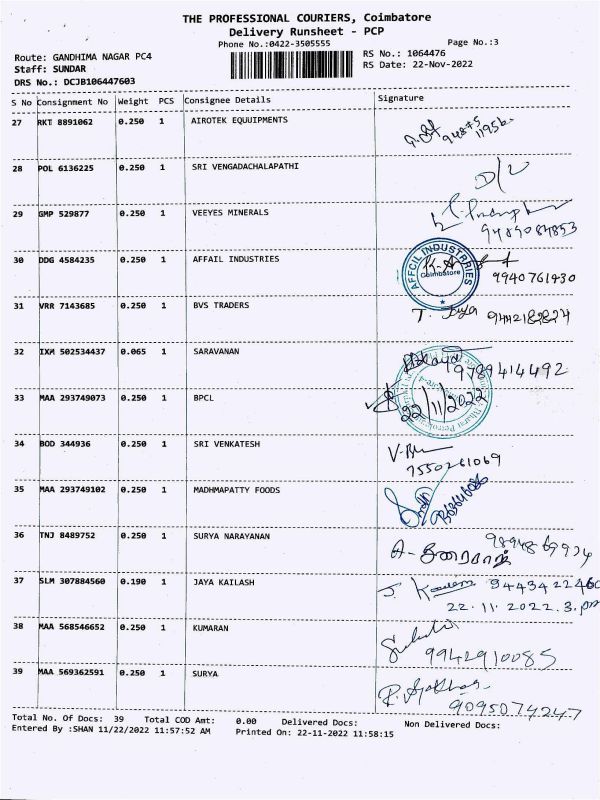 THE PROFESSIONAL COURIERS, Coimbatore
Delivery Runsheet - PCP
Phone No.:0422-3505555
Page No.:3
Route: GANDHIMA NAGAR PC4
RS No.: 1064476
Staff: SUNDAR
RS Date: 22-Nov-2022
DRS No.: DCJB106447603
S No Consignment No Weight PCS Consignee Details Signature
27 RKT 8891062 0.250 1 AIROTEK EQUUIPMENTS
28 POL 6136225 0.250 1 SRI VENGADACHALAPATHI D/L
29 GMP 529877 0.250 1 VEEYES MINERALS
9489084853
30 DDG 4584235 0.250 1 AFFAIL INDUSTRIES
AFFCIL INDUSTRIES
Coimbatore
9940761430
31 VRR 7143685 0.250 1 BVS TRADERS
32 IXM 502534437 0.065 1 SARAVANAN
9789414492
33 MAA 293749073 0.250 1 BPCL
22/11/2022
34 BOD 344936 0.250 1 SRI VENKATESH
7550261069
35 MAA 293749102 0.250 1 MADHMAPATTY FOODS
36 TNJ 8489752 0.250 1 SURYA NARAYANAN
37 SLM 307884560 0.190 1 JAYA KAILASH
9443422460
22.11.2022.3.pm
38 MAA 568546652 0.250 1 KUMARAN
9942910085
39 MAA 569362591 0.250 1 SURYA
9095074247
Total No. Of Docs: 39 Total COD Amt: 0.00 Delivered Docs: Non Delivered Docs:
Entered By :SHAN 11/22/2022 11:57:52 AM Printed On: 22-11-2022 11:58:15